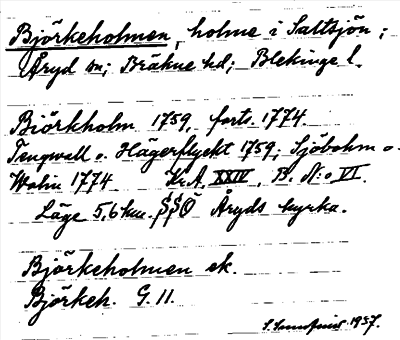 Björkeholmen, holme i Saltsjön;
Åryd sn; Bräkne hd; Blekinge l.
Biörkholm 1759, forts. 1774
Tengwall o. Hägerflyckt 1759; Sjöbohm o.
Walin 1774 Kr.A, XXIV, B. N:o VI.
Läge 5,6 km. SSO Åryds kyrka.
Björkeholmen ek.
Björkeh. G. 11.
1937.